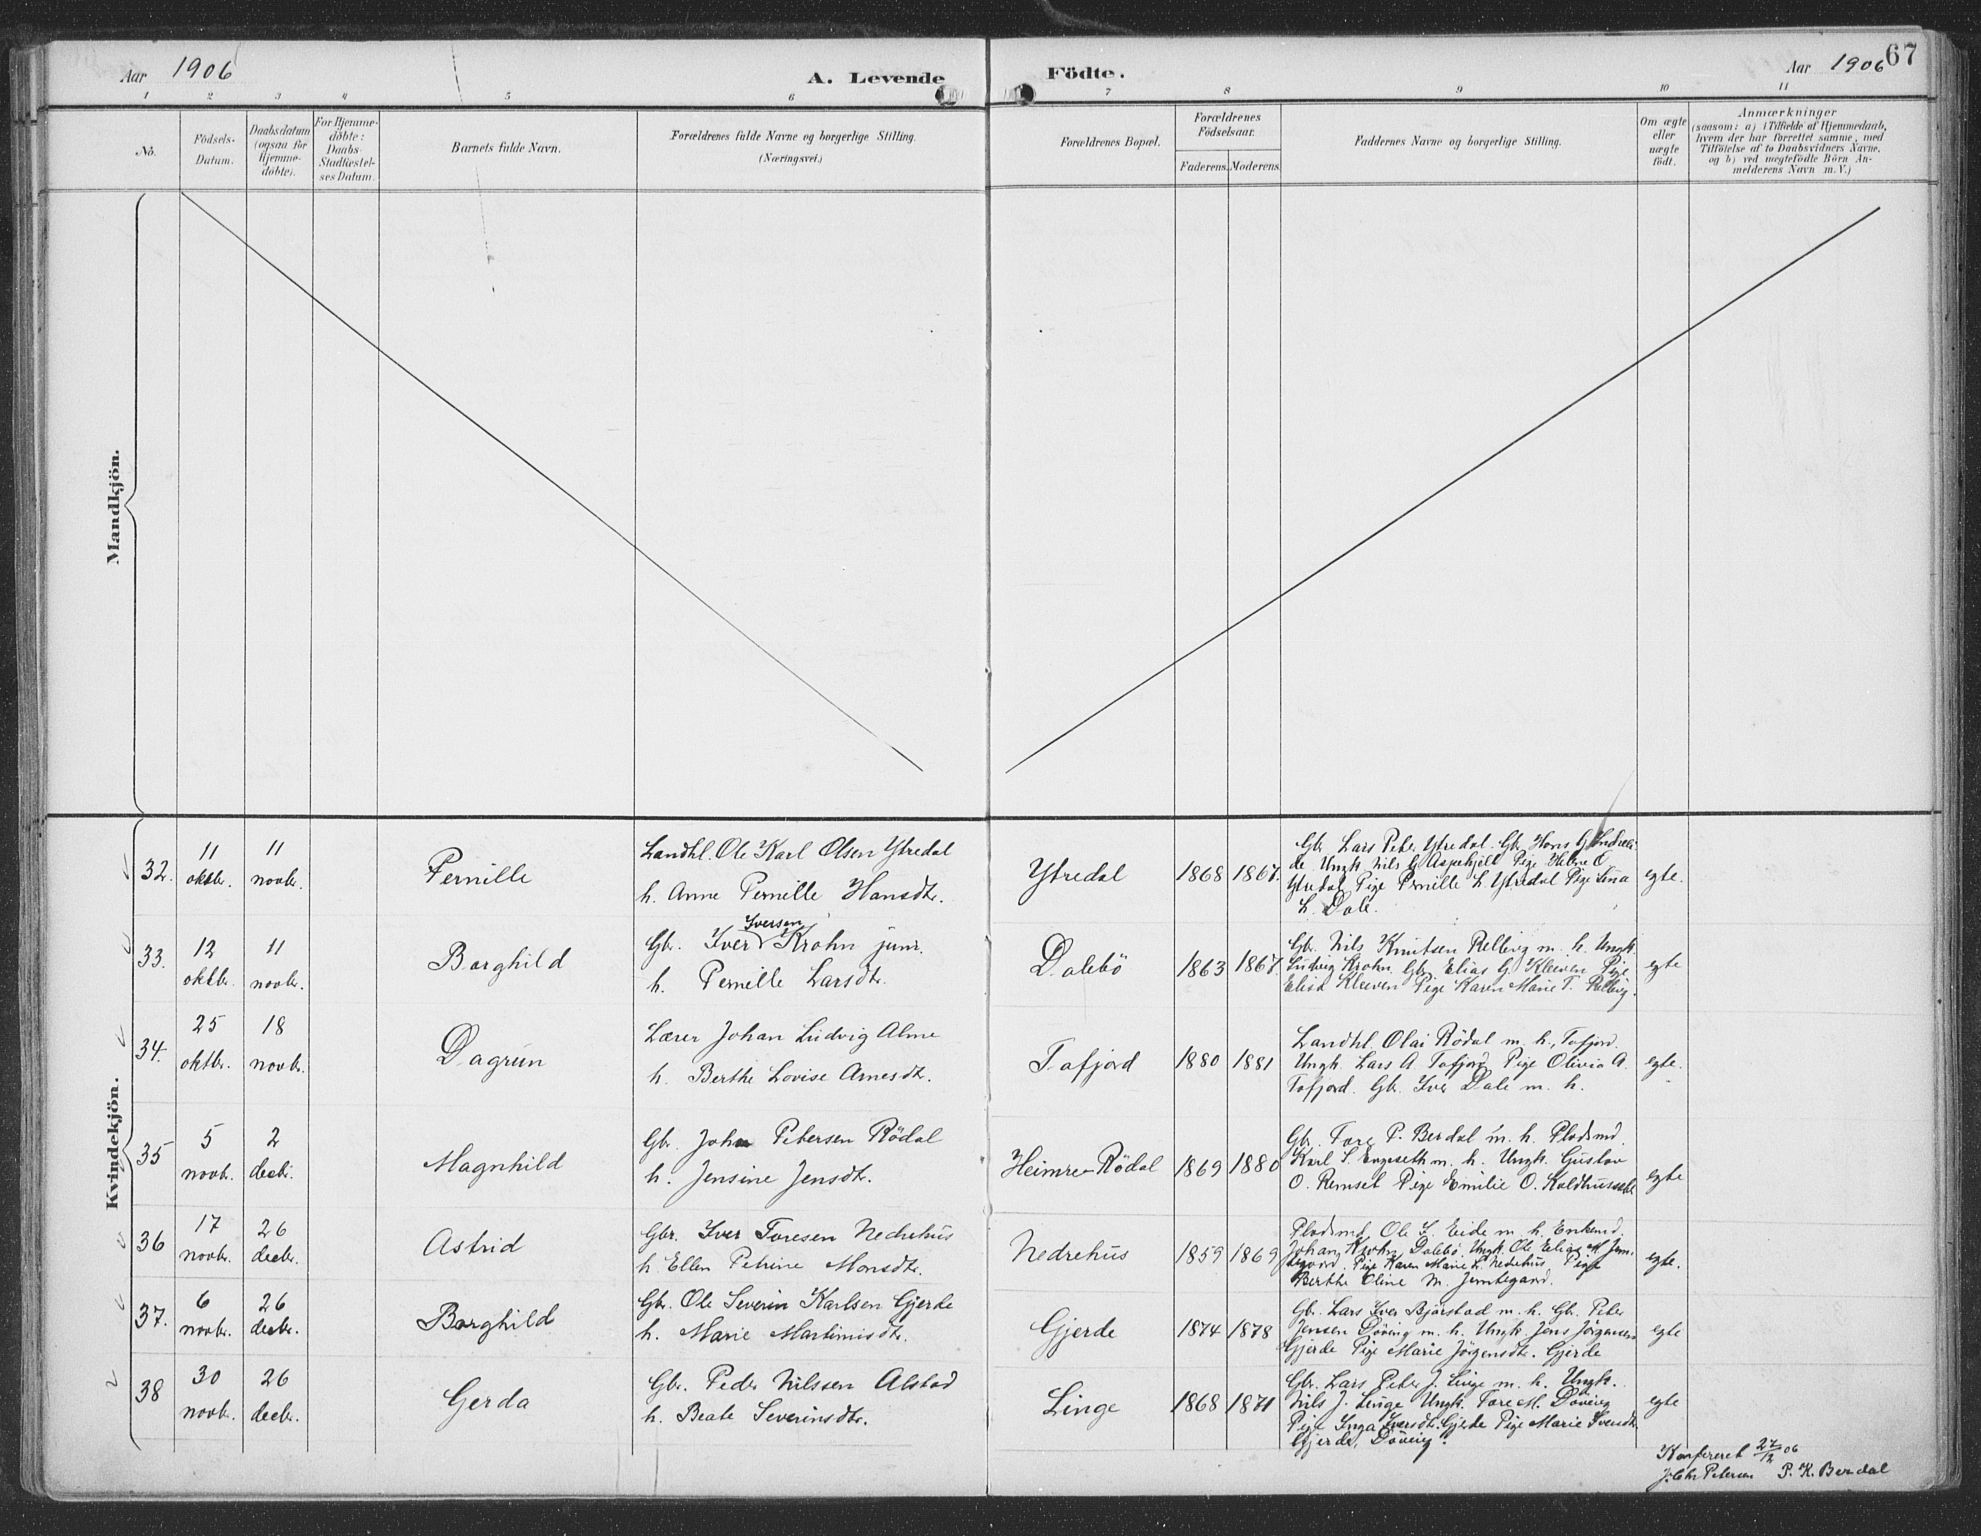 Aar 1906
A. Levende Födte.
Aar 1906
67
1 2 3 4 5 6 7 8 9 10 11
No.
Födsels-
Datum.
Daabsdatum
(ogsaa for
Hjemme-
döbte).
For Hjemme-
döbte:
Daabs-
Stadfæstel-
ses Datum.
Barnets fulde Navn.
Forældrenes fulde Navne og borgerlige Stilling.
(Næringsvei.)
Forældrenes Bopæl.
Forældrenes
Födselsaar.
Faderens. Moderens.
Faddernes Navne og borgerlige Stilling.
Om ægte
eller
uægte
födt.
Anmærkninger
(saasom: a) i Tilfælde af Hjemmedaab,
hvem der har forrettet samme, med
Tilföielse af to Daabsvidners Navne,
og b) ved uægtefödte Börn An-
melderens Navn m. V.)
Mandkjön.
Kvindekjön.
32.
11
oktbr.
11
novbr.
Pernille
Landhl. Ole Karl Olsen Ytredal
h. Anne Pernille Hansdtr.
Ytredal
1868
1867.
Gbr. Lars Peter Ytredal. Gbr. Hans G
de Ungk. Nils G. Aspehjell Pige Helene O.
Ytredal Pige Pernille L. Ytredal Pige Lina
L. Dale.
egte.
33.
12
oktbr.
11
novbr.
Borghild
Iversen
Gbr. Iver Krohn junr.
h. Pernille Larsdtr.
Dalebö
1863
1867.
Gbr. Nils Knutsen Relling m. h. Ungk.
Ludvig Krohn. Gbr. Elias G. Kleven Pige
Elisa Kleven Pige Karen Marie T. Relling.
egte
34.
25
oktbr.
18
novbr.
Dagrun
Lærer Johan Ludvig Alme
h. Berthe Lovise Arnesdtr.
Tafjord
1880
1881
Landhl. Olai Rödal m. h., Tafjord.
Ungk. Lars A. Tafjord Pige Olivia A.
Tafjord. Gbr. Iver Dale m. h.
egte.
35
5
novbr.
2
decbr.
Magnhild
Gbr. John Petersen Rödal
h. Jensine Jensdtr.
Heimre-Rödal
1869
1880
Gbr. Tore P. Berdal m. h. Pladsmd.
Karl S. Engeseth m. h. Ungk. Gustav
O. Remset Pige Emilie O. Koldhussæt
egte
36
17
novbr.
26
decbr.
Astrid
Gbr. Iver Toresen Nedrehus
h. Ellen Petrine Monsdtr.
Nedrehus
1859
1869
Pladsmd. Ole S. Eide m. h. Enkemd.
Johan Krohn Dalebö. Ungk. Ole Elias M. Jem-
tegaard. Pige Karen Marie L. Nedrehus, Pige
Berthe Oline M. Jemtegaard.
egte.
37.
6
novbr.
26
decbr.
Borghild
Gbr. Ole Severin Karlsen Gjerde
h. Marie Martinusdtr.
Gjerde
1874
1878
Gbr. Lars Iver Bjørstad m. h. Gbr. Peter
Jensen Döving m. h. Ungk. Jens Jörgensen
Gjerde Pige Marie Jörgensdtr. Gjerde
egte
38
30
novbr.
26
decbr.
Gerda
Gbr. Peder Nilssen Alstad
h. Beate Severinsdtr.
Linge
1868
1871
Gbr. Lars Peter J. Linge m. h. Ungk.
Nils J. Linge Ungk. Tore M. Döving
Pige Inga Iversdtr. Gjerde Pige Marie Svendtr.
Gjerde, Döving.
egte
Konfereret 27/12 06
J. Chr. Petersen P. K. Berdal